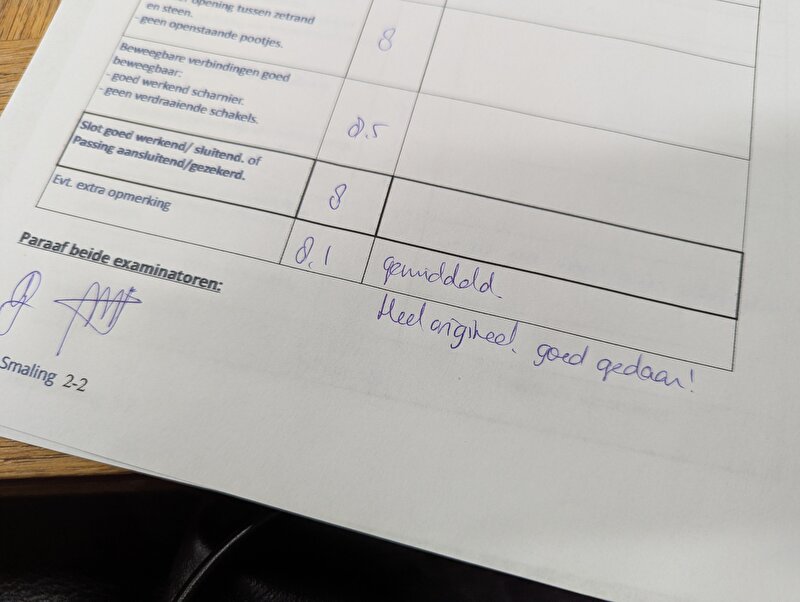 opening tussen zetrand
en steen.
- geen openstaande pootjes.
8
Beweegbare verbindingen goed
beweegbaar:
- goed werkend scharnier.
- geen verdraaiende schakels.
8.5
Slot goed werkend/ sluitend. of
Passing aansluitend/gezekerd.
8
Evt. extra opmerking
8.1 gemiddeld.
Heel origineel. goed gedaan!
Paraaf beide examinatoren:
Smaling 2-2